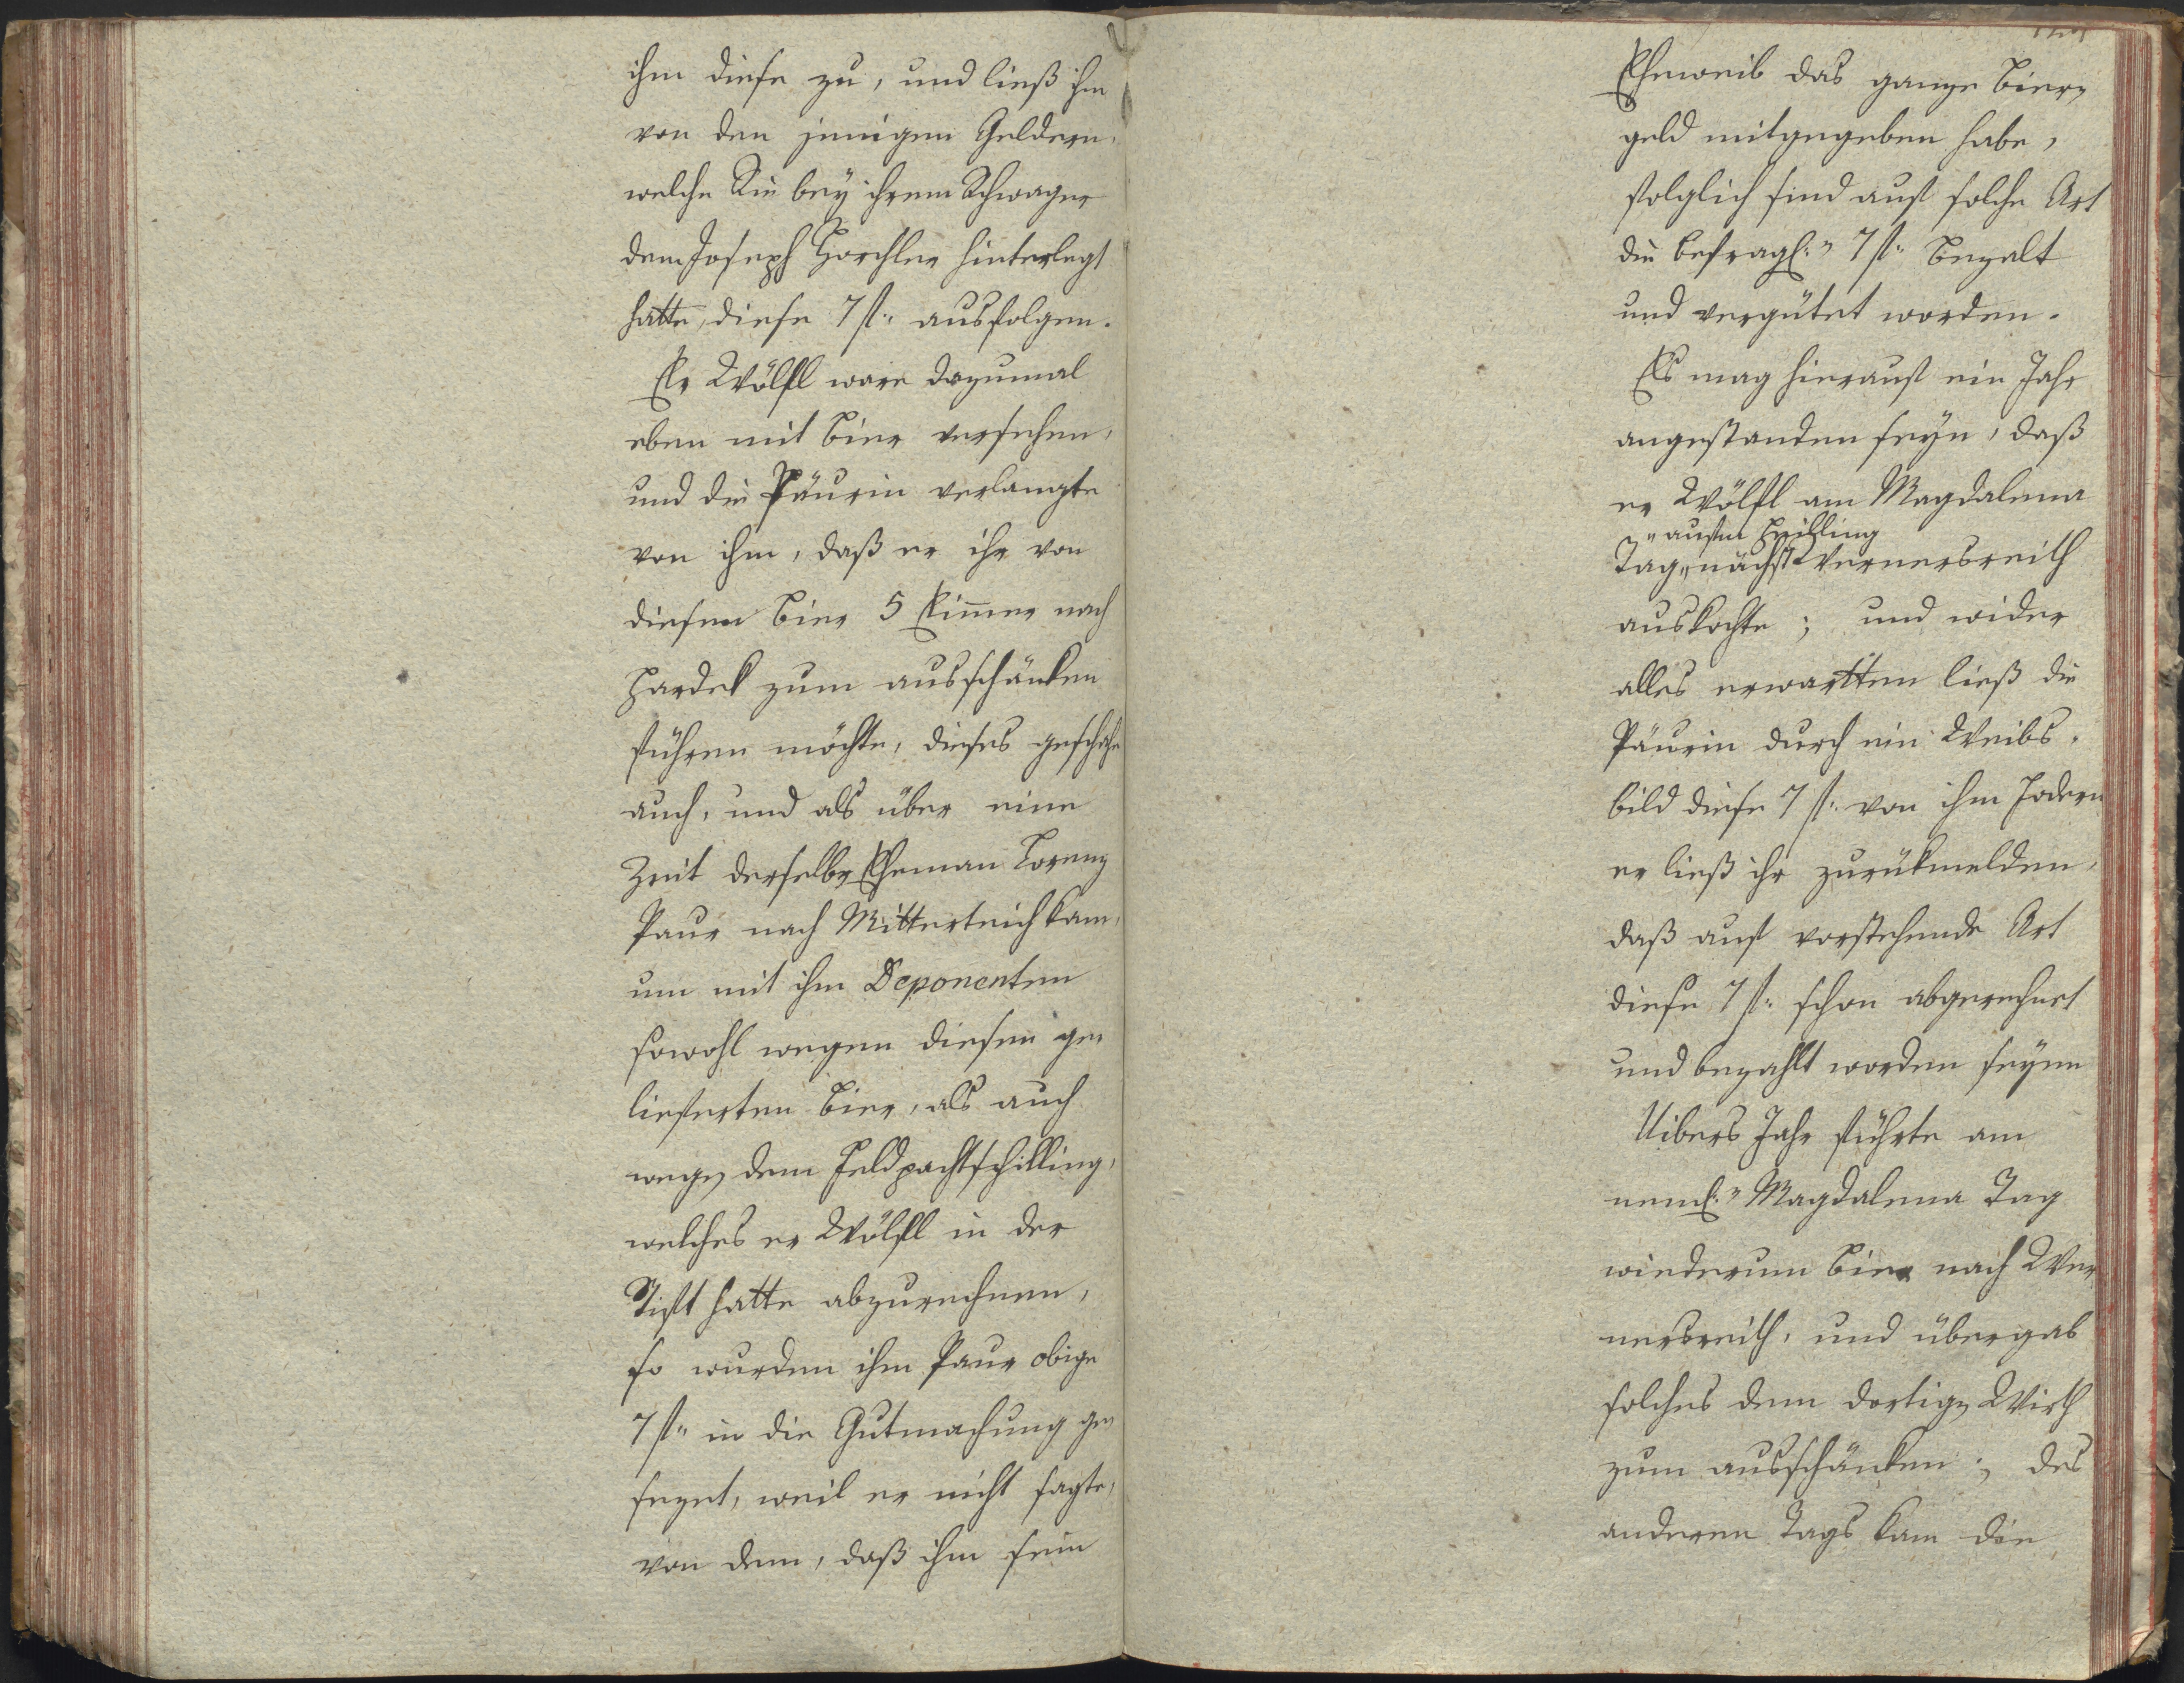 ihm diese zu, und ließ ihm
von den jenigen Geldern,
welche Sie bey ihrem Schwager
dem Joseph Horchler hinterlegt
hatte, diese 7 f: ausfolgen.
Er Wölfl ware dazumal
eben mit Bier versehen,
und die Päurin verlangte
von ihm, daß er ihr von
diesem Bier 5 Eimer nach
Hardek zum ausschänken
führen möchte, dieses geschahe
auch, und als über eine
Zeit derselbe Eheman Lorenz
Paur nach Mitterteich kam,
um mit ihm Deponenten
sowohl wegen diesen ge
lieferten Bier, als auch
wegen dem Feldpachtschilling,
welches er Wölfl in der
Stift hatte abzurechnen,
so wurden ihm Paur obige
7 f: in die Gutmachung ge
sezet, weil er nicht sagte,
von dem, daß ihm sein
Eheweib das ganze Bier
geld mitgegeben habe,
folglich sind auf solche Art
die befragl: 7 f: bezalt
und vergütet worden.
Es mag hierauf ein Jahr
angestanden seyn, daß
er Wölfl am Magdalena
"aufm
Tag "nächst Wernersreith
auskochte; und wider
alles erwartten ließ die
Päurin durch ein Weibs-
bild diese 7 f: von ihm fodern
er ließ ihr zurükmelden,
daß auf vorstehende Art
diese 7 f: schon abgerechnet
und bezahlt worden seyen
Uibers Jahr führte am
neml: Magdalena Tag
wiederum Bier nach Wer
nersreith, und übergab
solches dem dortigen Wirth
zum ausschänken; des
anderen Tags kam die